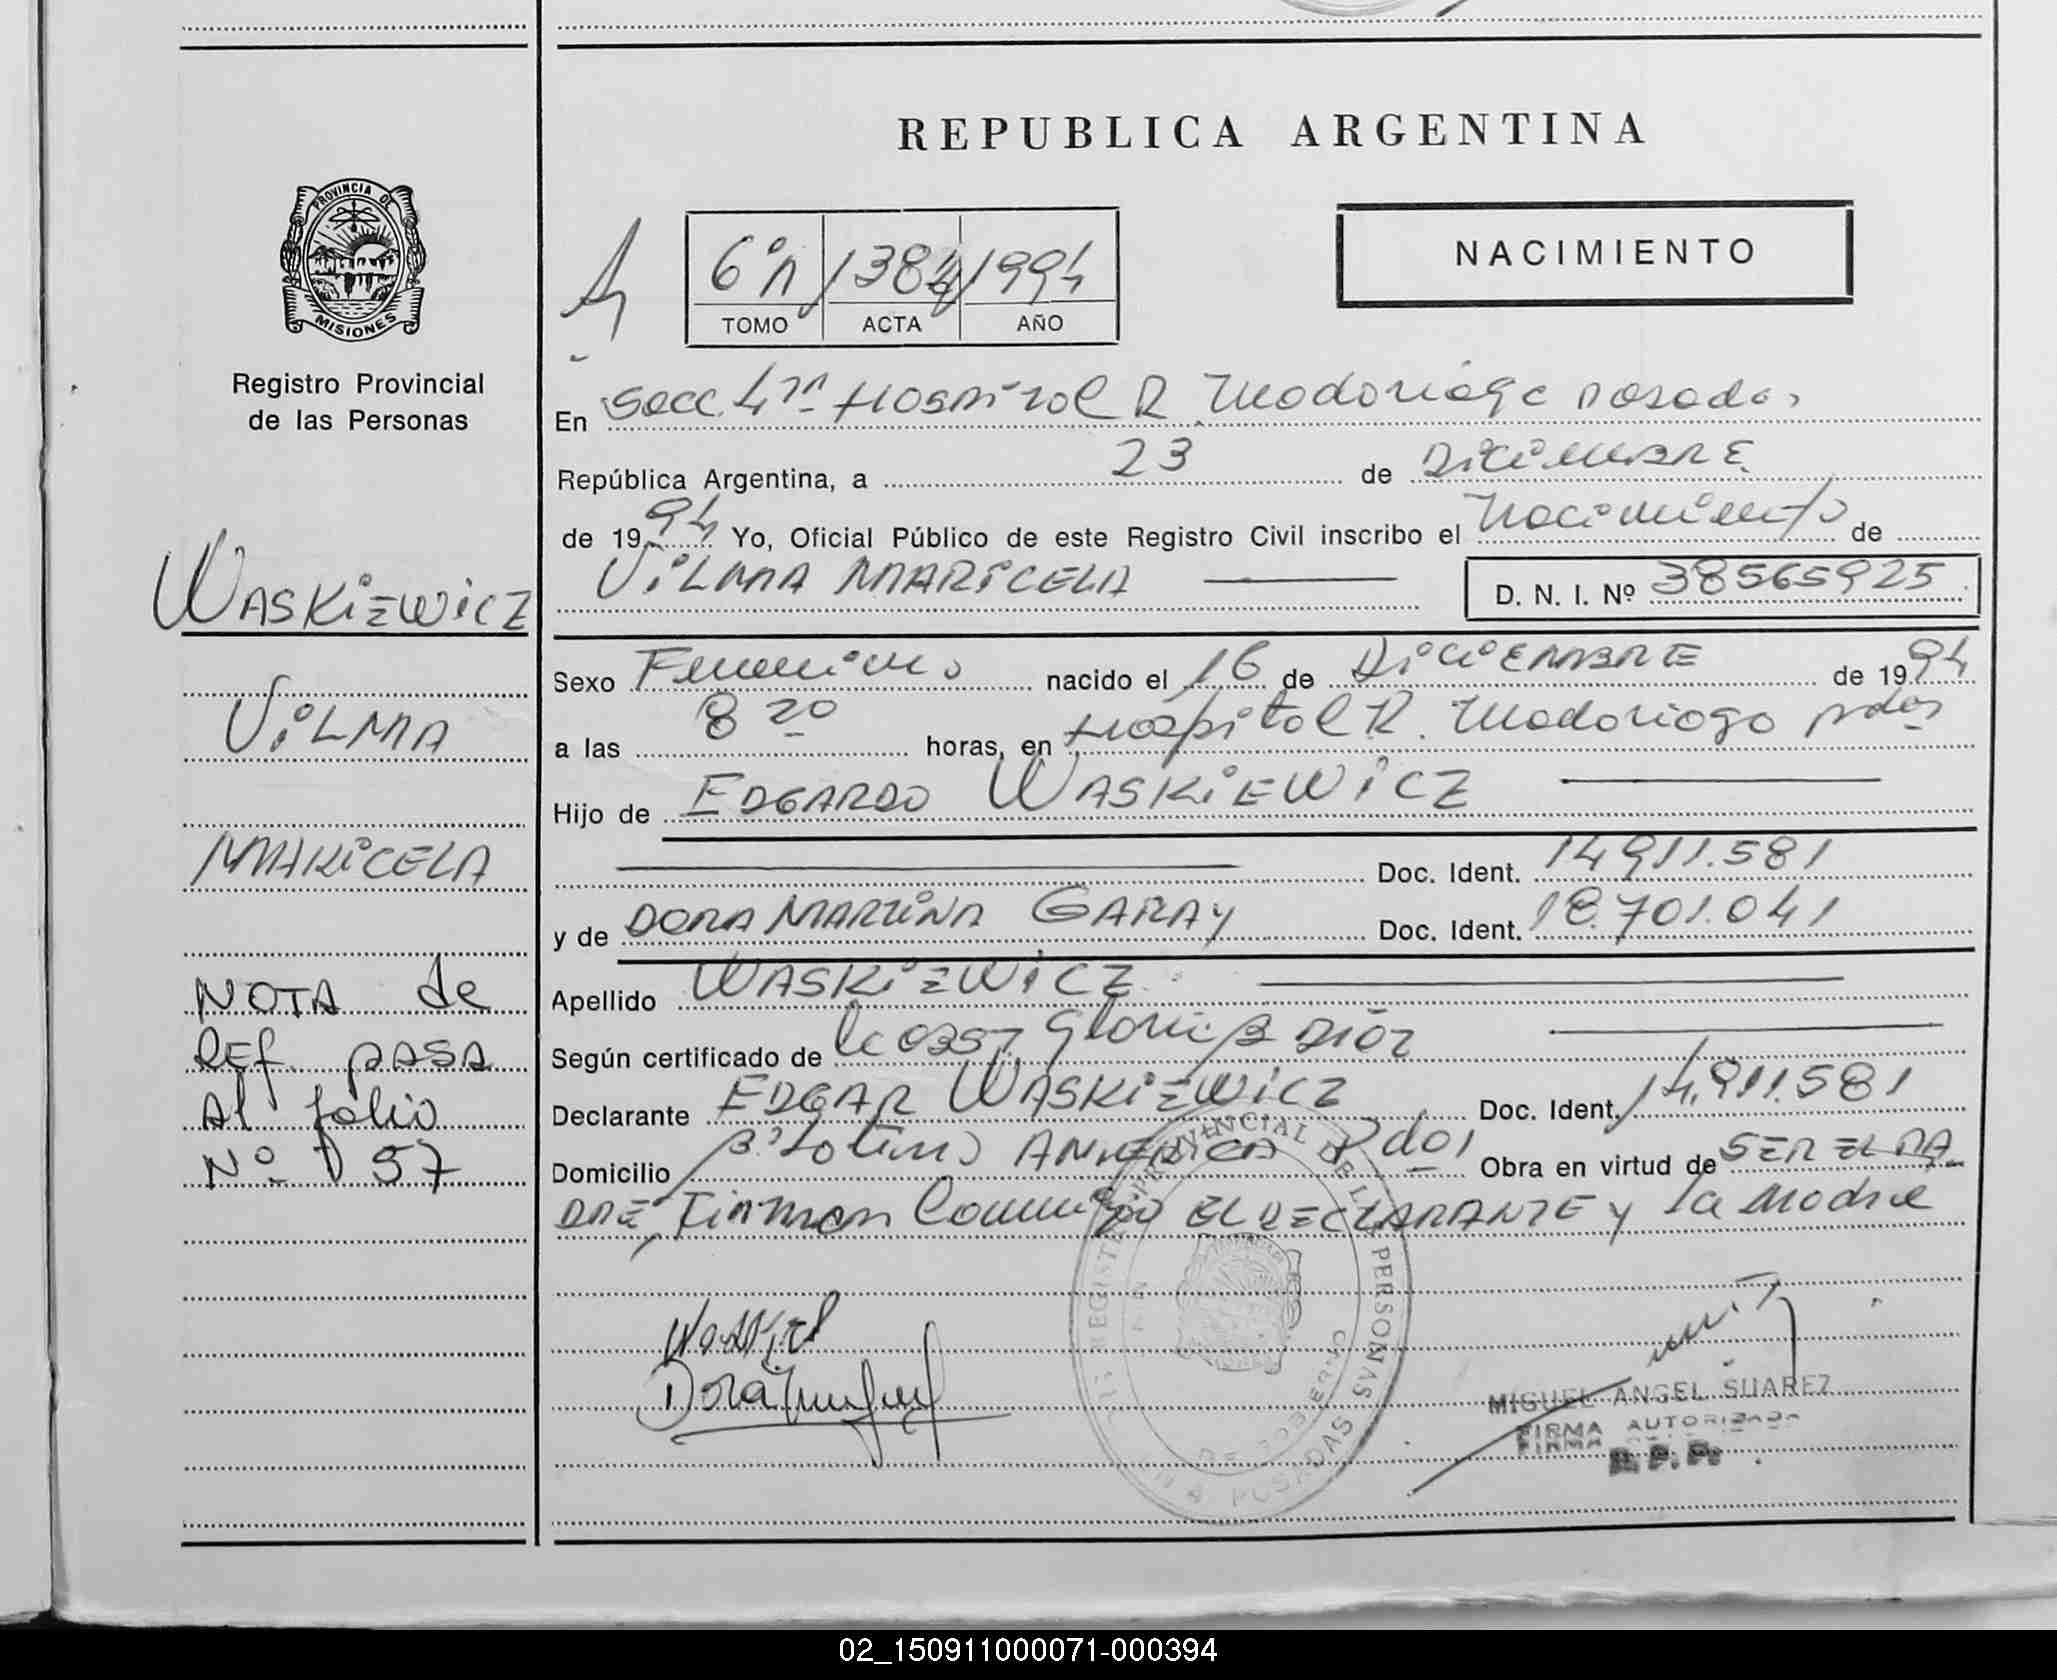 REPUBLICA ARGENTINA
PROVINCIA DE
MISIONES
Registro Provincial
de las Personas
6º A 1384 1994
TOMO ACTA AÑO
NACIMIENTO
En Secc 4ta Hospital R Madariaga Posadas
República Argentina, a 23 de DICIEMBRE
de 1994 Yo, Oficial Público de este Registro Civil inscribo el Nacimiento de
VILMA MARICELA D. N. I. Nº 38565925
WASKIEWICZ
VILMA
MARICELA
NOTA de
REF. PASA
Al folio
Nº 157
Sexo Femenino nacido el 16 de DICIEMBRE de 1994
a las 8 20 horas, en Hospital R. Madariaga pdas
Hijo de EDGARDO WASKIEWICZ
Doc. Ident. 14911.581
y de DORA MARTINA GARAY Doc. Ident. 18.701.041
Apellido WASKIEWICZ
Según certificado de Gloria B DIAZ
Declarante EDGAR WASKIEWICZ Doc. Ident. 14.911.581
Domicilio AMERICA Pdas Obra en virtud de SER EL PA
DRE, Firman Conmigo EL DECLARANTE y la Madre
REGISTRO PROVINCIAL DE LAS PERSONAS
POSADAS
DE GOBIERNO
MIGUEL ANGEL SUAREZ
FIRMA AUTORIZADA
R. P. P.
02_150911000071-000394